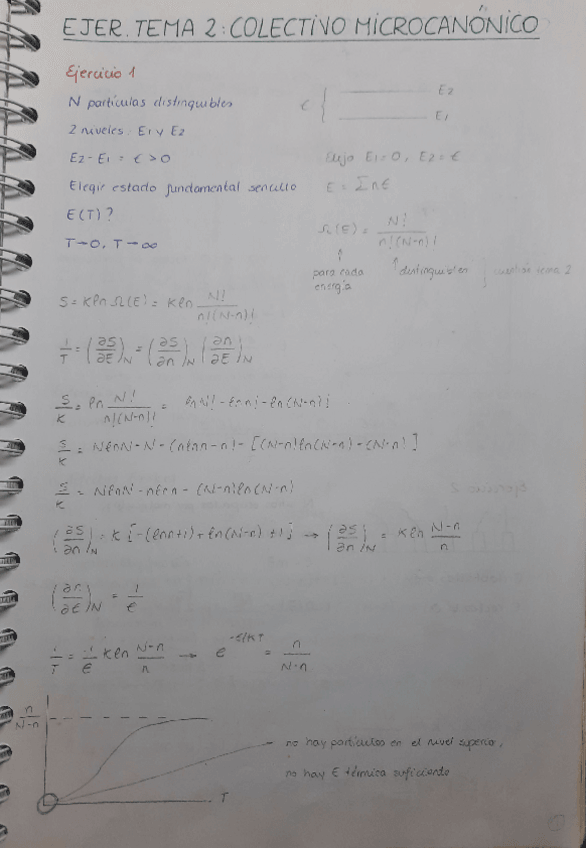 EJER. TEMA 2: COLECTIVO MICROCANÓNICO
Ejercicio 1
N partículas distinguibles
2 niveles: E1 y E2
E2-E1 = ϵ > 0
Elegir estado fundamental sencillo
E(T)?
T→0, T→∞
ϵ { E2
E1
Elijo E1=0, E2=ϵ
E = Σnϵ
Ω(E) = N! / n!(N-n)!
↑ para cada energía
↑ distinguibles } tema 2
S = k ln Ω(E) = k ln N! / n!(N-n)!
1/T = (∂S/∂E)N = (∂S/∂n)N (∂n/∂E)N
S/k = ln N! / n!(N-n)! = ln N! - ln n! - ln(N-n)!
S/k = N ln N - N - (n ln n - n) - [(N-n) ln(N-n) - (N-n)]
S/k = N ln N - n ln n - (N-n) ln(N-n)
(∂S/∂n)N = k [-(ln n+1) + ln(N-n) + 1] → (∂S/∂n)N = k ln N-n / n
(∂n/∂E)N = 1/ϵ
1/T = 1/ϵ k ln N-n / n → e^-ϵ/kT = n / N-n
n / N-n
T
no hay partículas en el nivel superior,
no hay E térmica suficiente